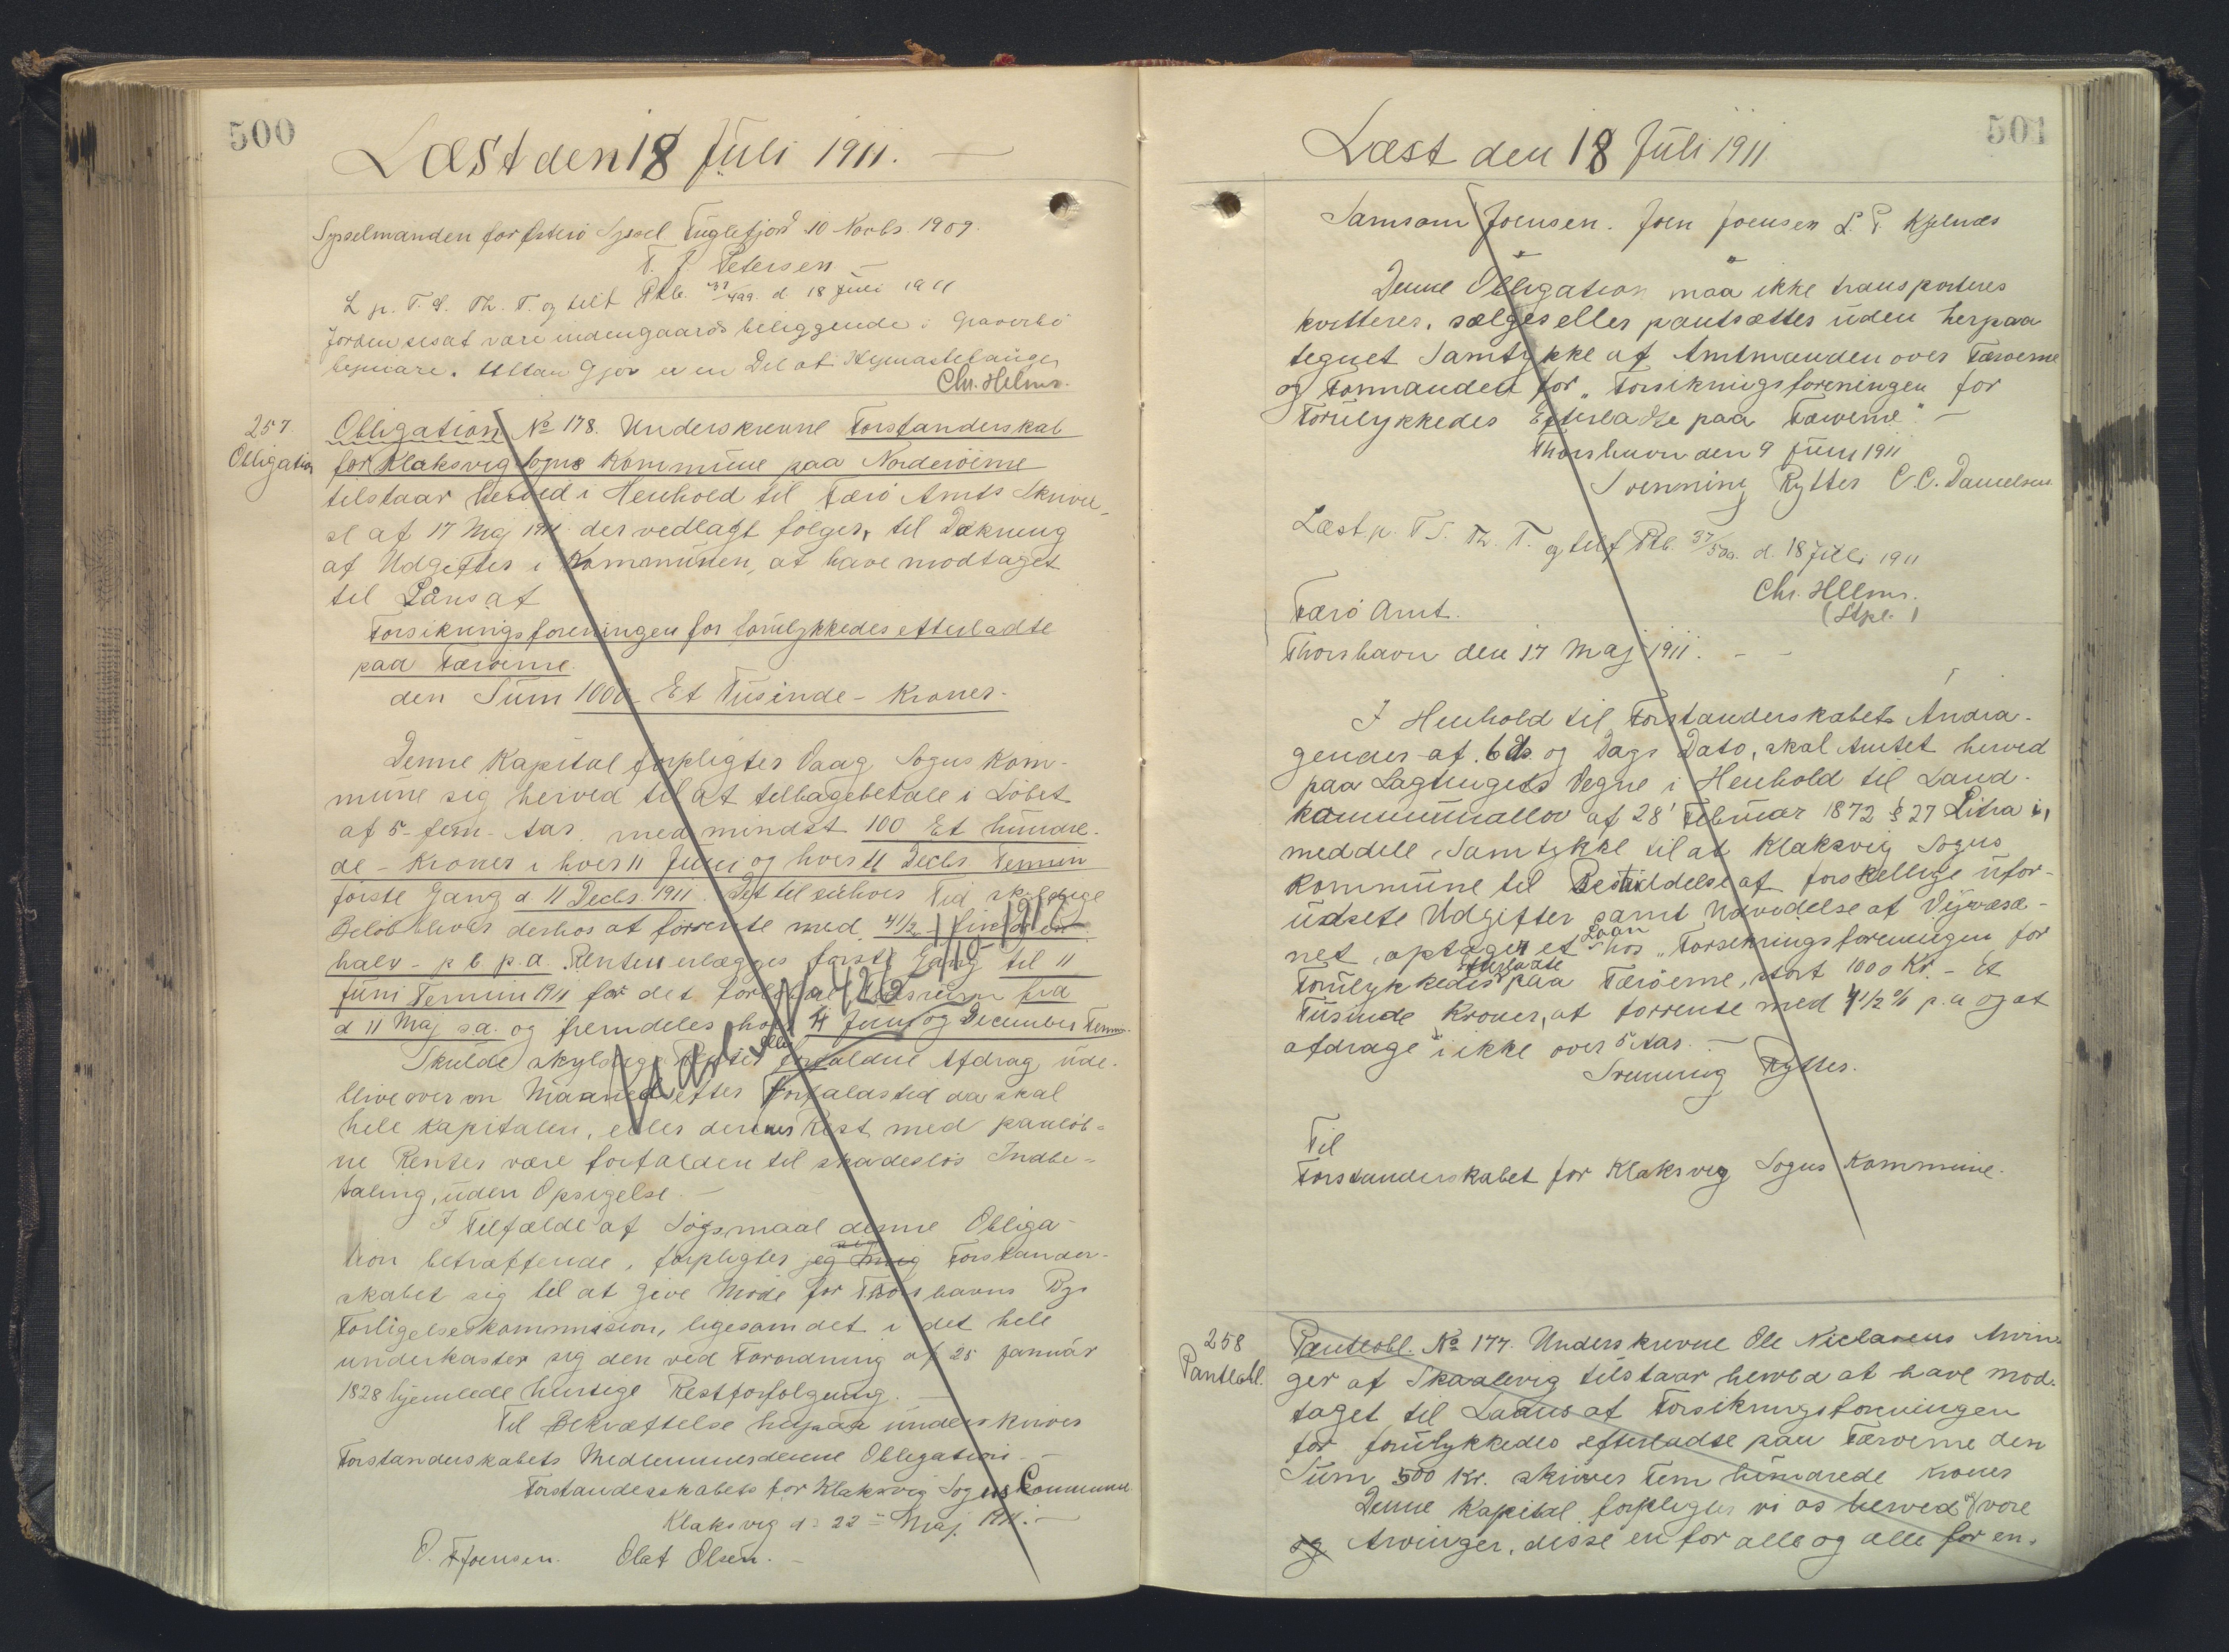 500
Læst den 18 Juli 1911.
Sysselmanden for Østerø Syssel Fuglefjord 10 Novbr. 1909.
T. J. Petersen
L p. T. S. Th. T. og tilf Ptb. 37/499. d. 18 Juli 1911
Jorden sesat være indengaards beliggende i
Chr. Helms.
257.
Obligation
Obligation № 178. Underskrevne Forstanderskab
for Klaksvig Sogns Kommune paa Norderöerne
tilstaar herved i Henhold til Færö Amts Skrivel-
se af 17 Maj 1911 der vedlagt følger, til Dækning
af Udgifter i Kommunen, at have modtaget
til Låns af
Forsikringsforeningen for forulykkedes efterladte
paa Færøerne.
den Sum 1000 Et Tusinde - Kroner.
Denne Kapital forpligter Vaag Sogns Kom-
mune sig herved til at tilbagebetale i Löbet
af 5 - fem - Aar med mindst 100 Et hundre-
de - Kroner i hver 11 Juni og hver 11 Decbr Termin
förste Gang d. 11 Decbr. 1911. Det til enhver Tid skyldige
Belöb bliver derhos at forrente med 4 1/2 - fire og en
halv - p c. p. a. Renten erlægges förste Gang til 11
Juni Termin 1911 for det forløbne Tidsrum fra
d 11 Maj s.a. og fremdeles hver 11 Juni og December Termin.
Skulde skyldige Renter eller forfaldne Afdrag ude-
blive over en Maaned efter Forfaldstid da skal
hele Kapitalen, eller dennes Rest med paaløb-
ne Renter være forfalden til skadesløs Indbe-
taling, uden Opsigelse. -
I Tilfælde af Søgsmaal denne Obliga-
tion betræffende, forpligter jeg mig Forstander-
skabet sig til at give Möde for Thorshavns Bys
Forligelseskommission, ligesom det i det hele
underkaster sig den ved Forordning af 25 Januar
1828 hjemlede hurtige Retsforfølgning. -
Til Bekræftelse herpaa underskriver
Forstanderskabets Medlemmer denne Obligation -
Forstanderskabets for Klaksvig Sogns Commune
Klaksvig d. 22 Maj 1911. -
O. F. Joensen. Olaf Olsen. -
501
Læst den 18 Juli 1911
Samson Joensen. Joen Joensen L. P. Kjølnæs
Denne Obligation maa ikke transporteres
kvitteres, sælges eller pantsættes uden herpaa
tegnet Samtykke af Amtmanden over Færøerne
og Formanden for "Forsikringsforeningen for
Forulykkedes Efterladte paa Færøerne". -
Thorshavn den 9 Juni 1911
Svenning Rytter C. C. Danielsen
Læst p. T S. Th. T. og tilf Ptb. 37/500. d. 18 Juli 1911
Chr. Helms.
(Stpl.)
Færö Amt.
Thorshavn den 17 Maj 1911. - -
I Henhold til Forstanderskabets Andra-
gender af 6 ds og Dags Dato, skal Amtet herved
paa Lagtingets Vegne i Henhold til Land-
kommunallov af 28' Februar 1872 § 27 Litra i,
meddele Samtykke til at Klaksvig Sogns
Kommune til Bestriddelse af forskellige ufor-
udsete Udgifter samt Udvidelse af Vejvæse-
net, optager et Laan hos "Forsikringsforeningen for
Forulykkedes efterladte paa Færöerne, stort 1000 Kr. - Et
Tusinde Kroner, at forrente med 4 1/2 % p.a og at
afdrage i ikke over 5 Aar. -
Svenning Rytter.
Til
Forstanderskabet for Klaksvig Sogns Kommune.
258
Panteobl.
Panteobl. № 177. Underskrevne Ole Niclasens Arvin-
ger af Skaalevig tilstaar herved at have mod-
taget til Laans af Forsikringsforeningen
for forulykkedes efterladte paa Færøerne den
Sum 500 Kr. skriver Fem hundrede Kroner
Denne Kapital forpligter vi os herved og vore
og Arvinger, disse en for alle og alle for en,